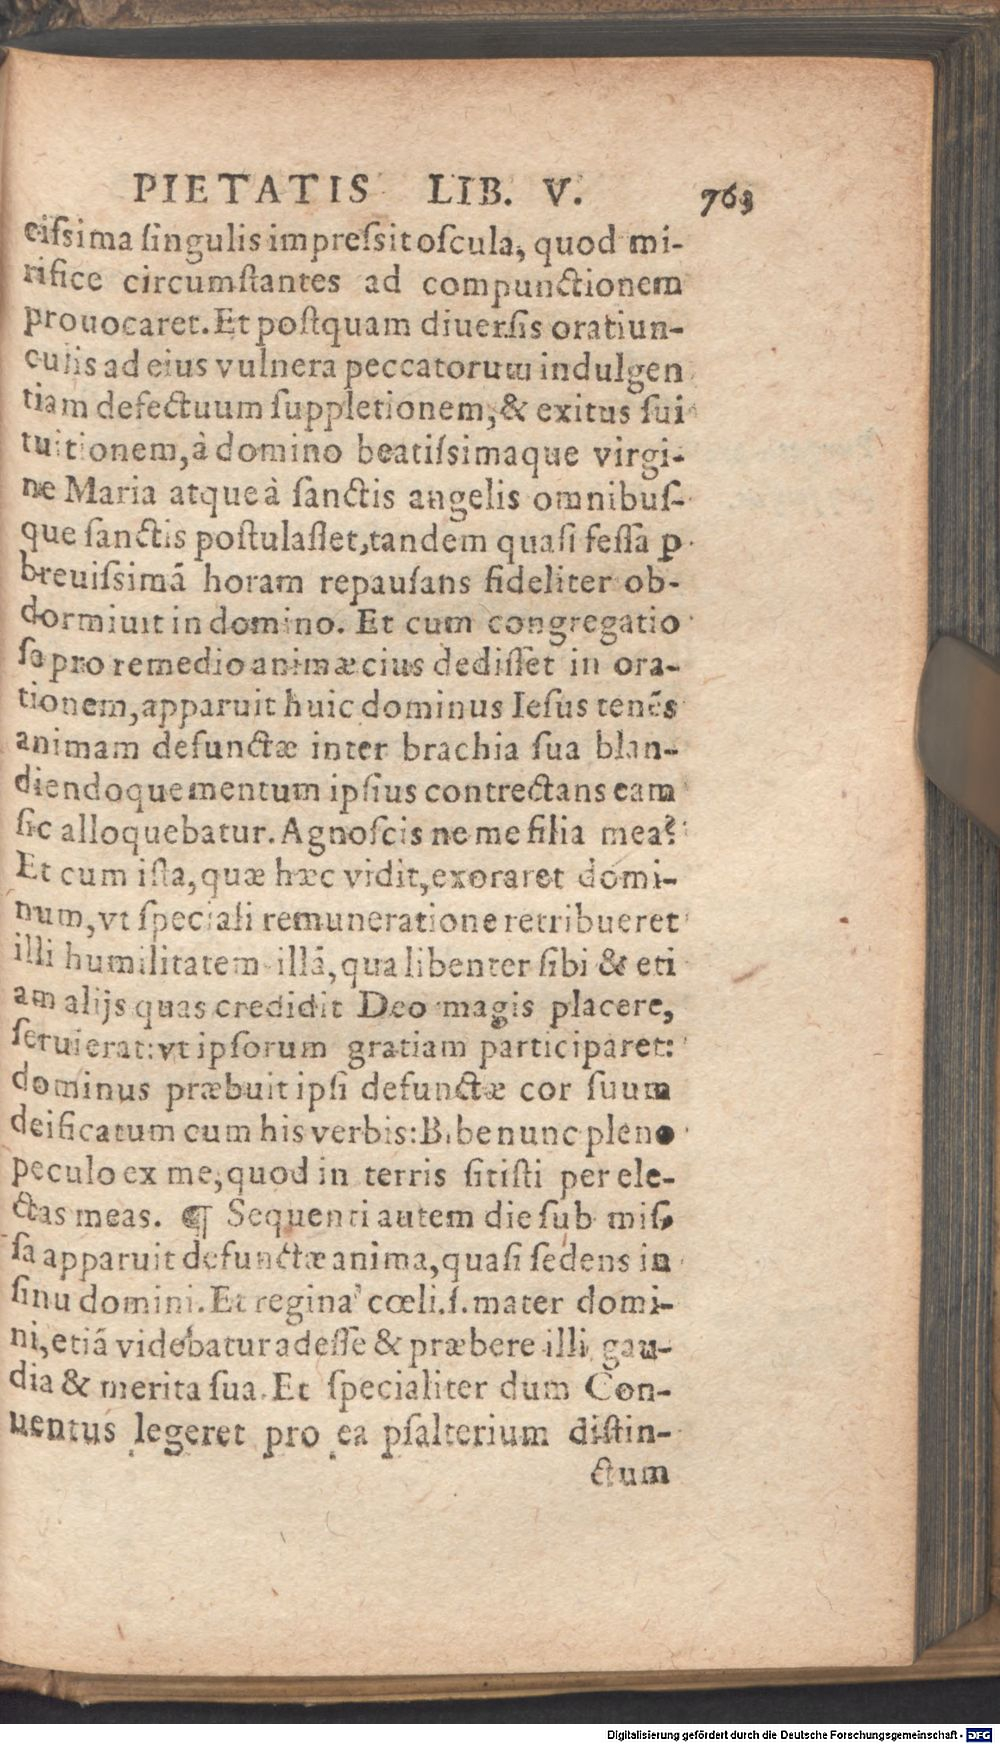 PIETATIS LIB. V. 763
cissima singulis impressit oscula, quod mi-
rifice circumstantes ad compunctionem
prouocaret. Et postquam diuersis oratiun-
culis ad eius vulnera peccatorum indulgen
tiam defectuum suppletionem, & exitus sui
tuitionem, à domino beatissimaque virgi-
ne Maria atque à sanctis angelis omnibus-
que sanctis postulasset, tandem quasi fessa ꝑ
breuissimã horam repausans fideliter ob-
dormiuit in domino. Et cum congregatio
se pro remedio animæ eius dedisset in ora-
tionem, apparuit huic dominus Iesus tenẽs
animam defunctæ inter brachia sua blan-
diendoque mentum ipsius contrectans eam
sic alloquebatur. Agnoscis ne me filia mea?
Et cum ista, quæ hæc vidit, exoraret domi-
num, vt speciali remuneratione retribueret
illi humilitatem illã, qua libenter sibi & eti
am alijs quas credidit Deo magis placere,
seruierat: vt ipsorum gratiam participaret:
dominus præbuit ipsi defunctæ cor suum
deificatum cum his verbis: Bibe nunc pleno
peculo ex me, quod in terris sitisti per ele-
ctas meas. ¶ Sequenti autem die sub mis-
sa apparuit defunctæ anima, quasi sedens in
sinu domini. Et regina cœli .s. mater domi-
ni, etiã videbatur adesse & præbere illi gau-
dia & merita sua. Et specialiter dum Con-
uentus legeret pro ea psalterium distin-
ctum
Digitalisierung gefördert durch die Deutsche Forschungsgemeinschaft - DFG